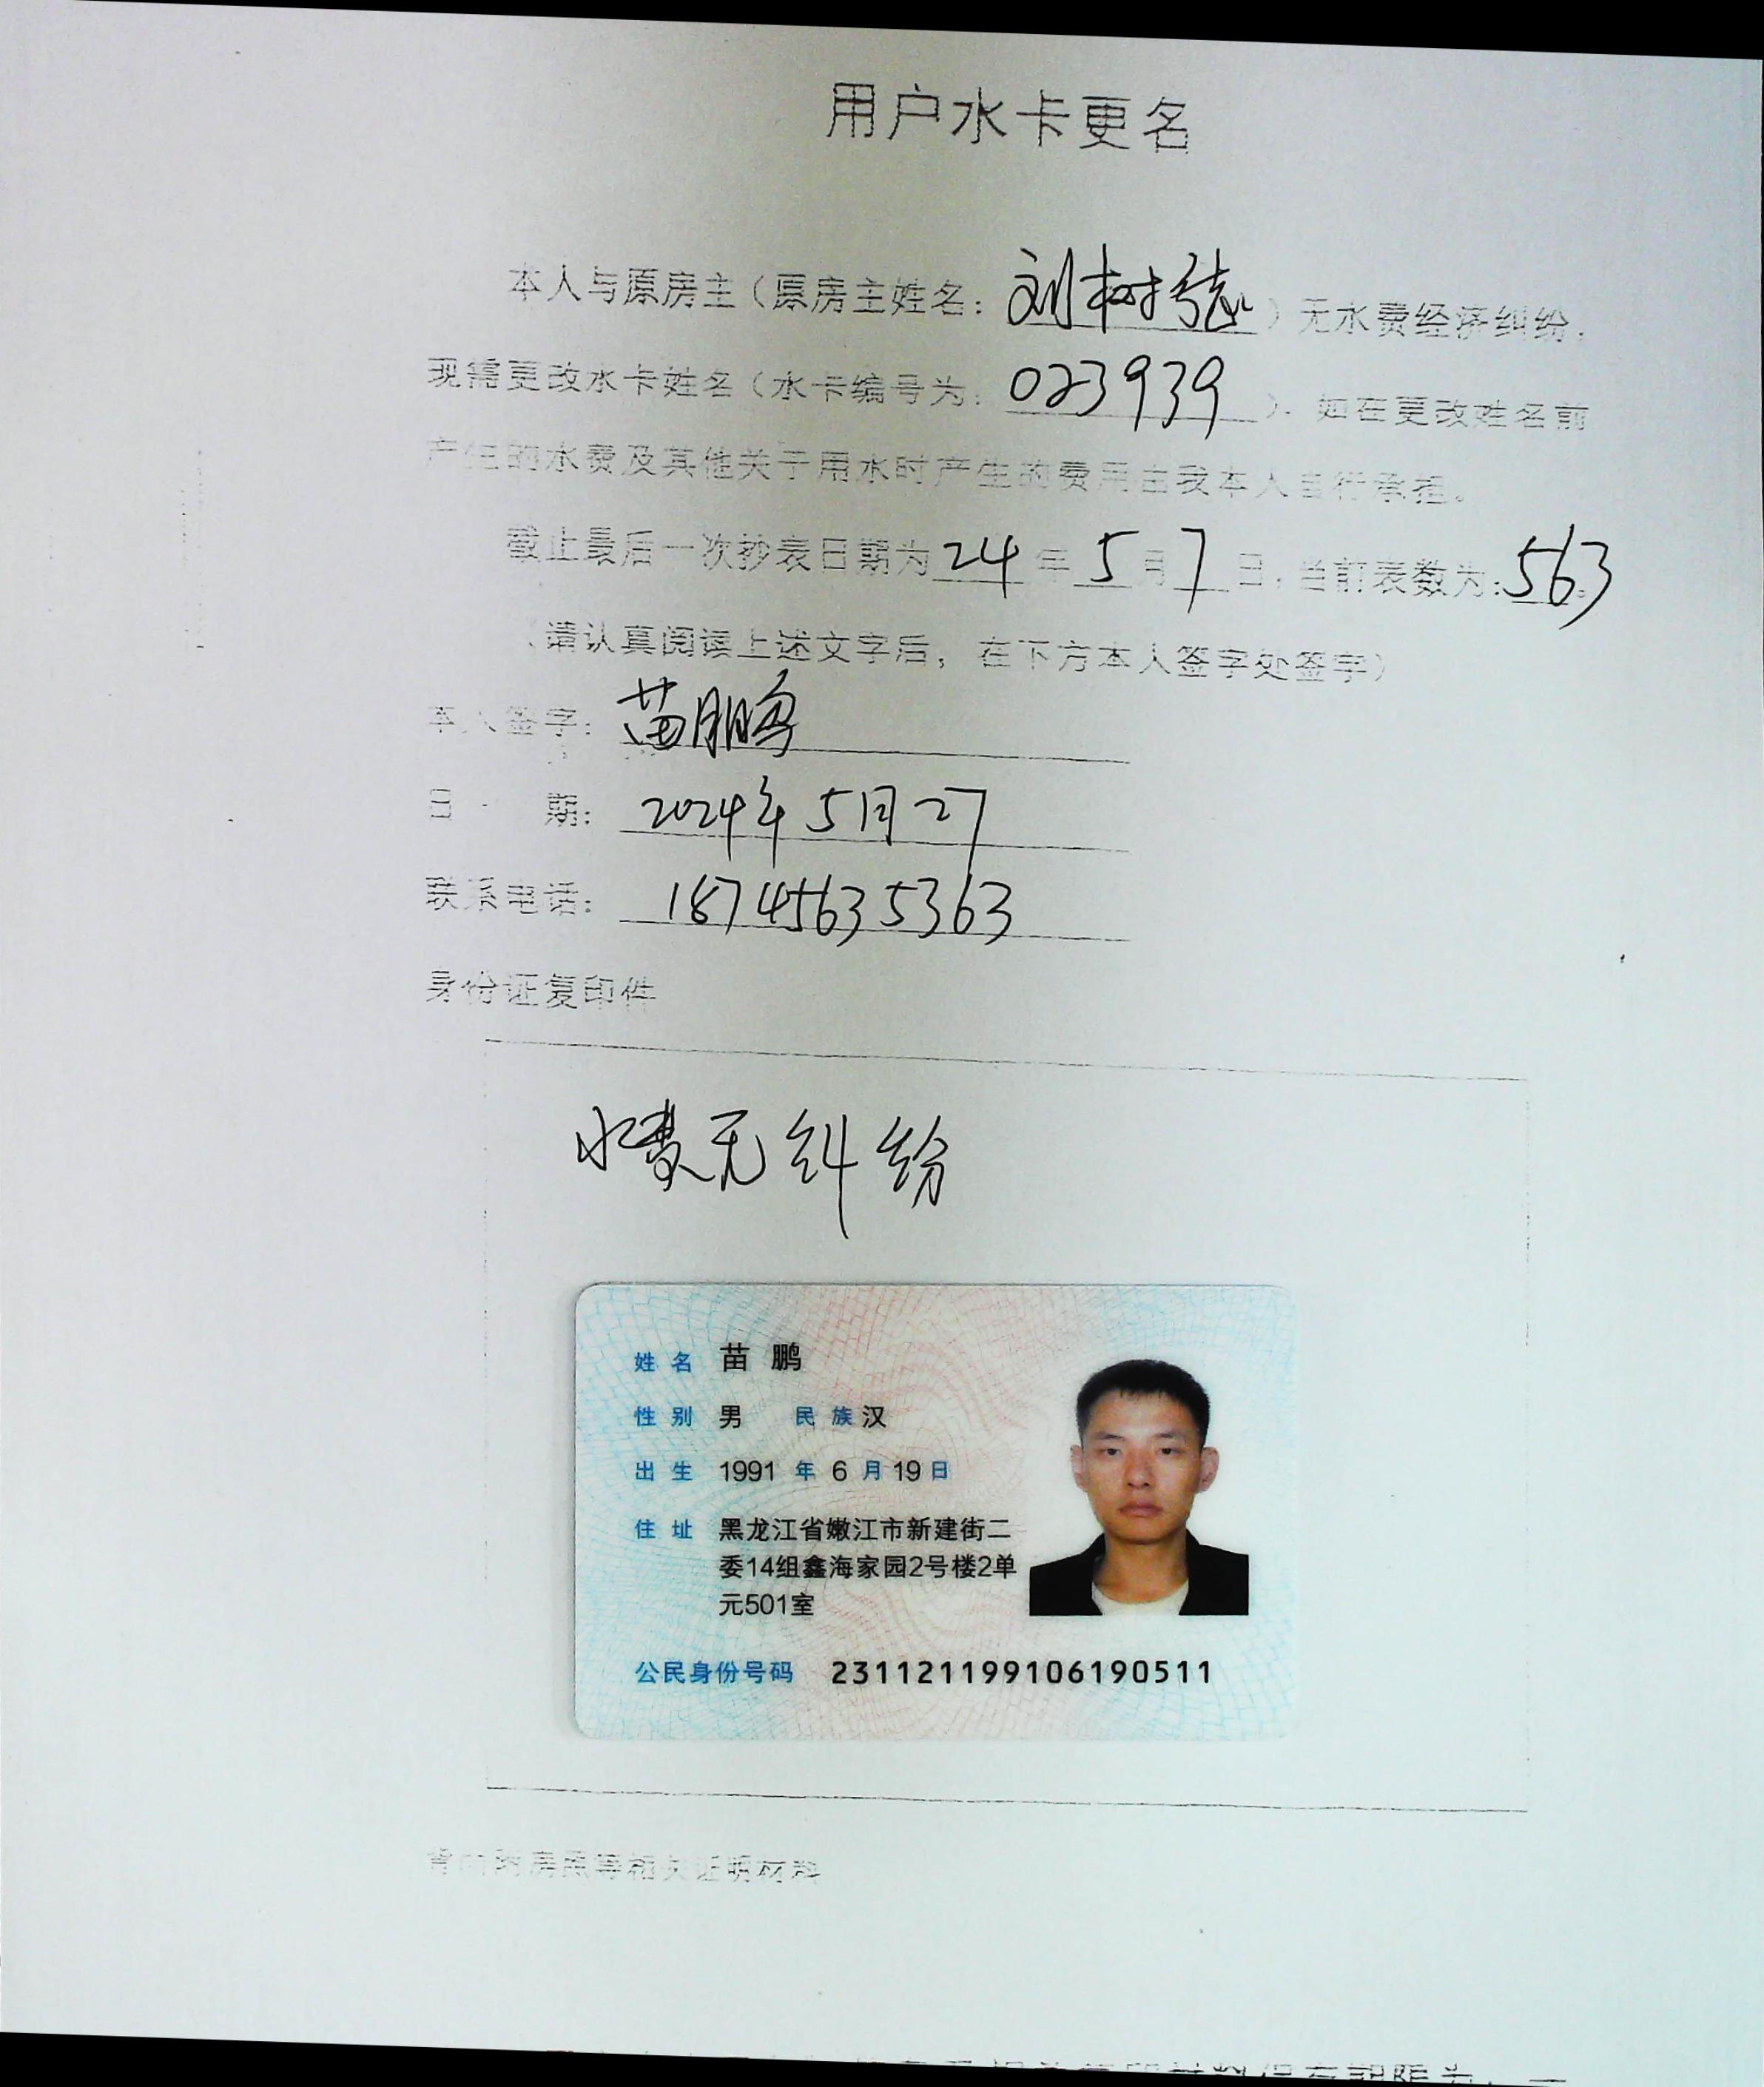 用户水卡更名
本人与原房主（原房主姓名：刘树德）无水费经济纠纷，
现需更改水卡姓名（水卡编号为：023939）。如在更改姓名前
产生的水费及其他关于用水时产生的费用由我本人自行承担。
截止最后一次抄表日期为24年5月7日，当前表数为：563。
（请认真阅读上述文字后，在下方本人签字处签字）
本人签字：苗鹏
日期：2024年5月27
联系电话：18745635363
身份证复印件
水费无纠纷
姓名 苗鹏
性别 男 民族 汉
出生 1991年6月19日
住址 黑龙江省嫩江市新建街二
委14组鑫海家园2号楼2单
元501室
公民身份号码 231121199106190511
背面附房照等相关证明材料